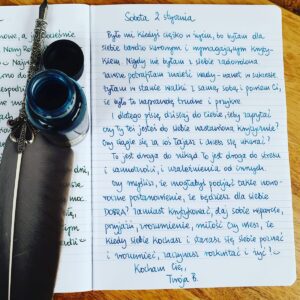 Sobota 2 stycznia
Było mi kiedyś ciężko w życiu, bo byłam dla
siebie bardzo surowym i wymagającym kryty-
kiem. Nigdy nie byłam z siebie zadowolona
zawsze potrafiłam znaleźć wady - nawet w sukcesie
Byłam w stanie walki z samą sobą i powiem Ci,
że było to naprawdę trudne i przykre.
I dlatego piszę dzisiaj do Ciebie, żeby zapytać
czy Ty też jesteś do siebie nastawiona krytycznie?
Czy ciągle się za coś łajasz i dajesz się ukarać?
To jest droga do nikąd To jest droga do stresu
i samotności, i uzależnienia od innych
Czy myślisz, że mogłabyś podjąć takie nowo-
roczne postanowienie, że będziesz dla siebie
DOBRA? Zamiast krytykować, daj sobie wsparcie,
przyjaźń, zrozumienie, miłość Czy wiesz, że
kiedy siebie kochasz i starasz się siebie poznać
i zrozumieć, zaczynasz rozkwitać i żyć!
Kocham Cię,
Twoja B.